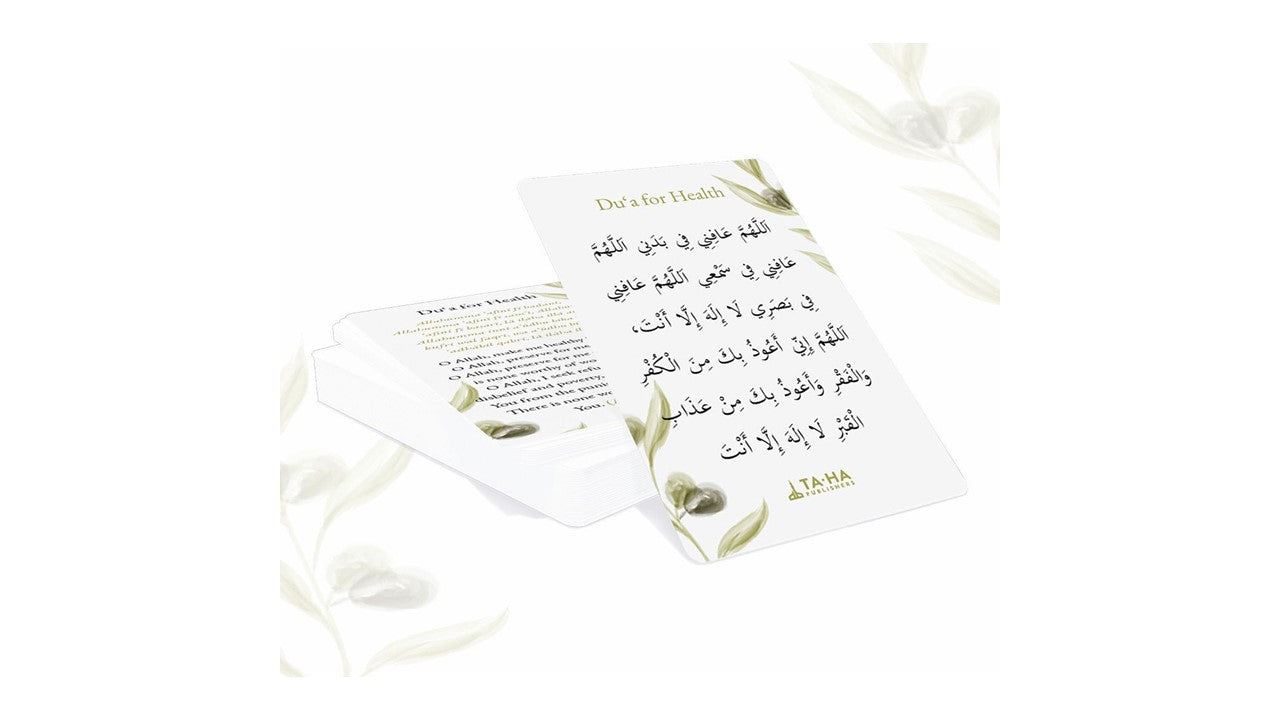 Du‘a for Health
اَللَّهُمَّ عَافِنِي فِي بَدَنِي اَللَّهُمَّ
عَافِنِي فِي سَمْعِي اَللَّهُمَّ عَافِنِي
فِي بَصَرِي لَا إِلَهَ إِلَّا أَنْتَ،
اَللَّهُمَّ إِنِّي أَعُوذُ بِكَ مِنَ الْكُفْرِ
وَالْفَقْرِ وَأَعُوذُ بِكَ مِنْ عَذَابِ
الْقَبْرِ لَا إِلَهَ إِلَّا أَنْتَ
TA-HA
PUBLISHERS
Du‘a for Health
Allahumma ‘afini fi badani,
Allahumma ‘afini fi sam‘i, allahumma
‘afini fi basari, la ilaha illa
Allahumma inni a‘udhu bika
kufri wal faqri, wa a‘udhu
‘adhabil qabri, la ilaha
O Allah, make me healthy
O Allah, preserve for me
O Allah, preserve for me
is none worthy of
O Allah, I seek
disbelief and poverty,
You from the
There is none
You.